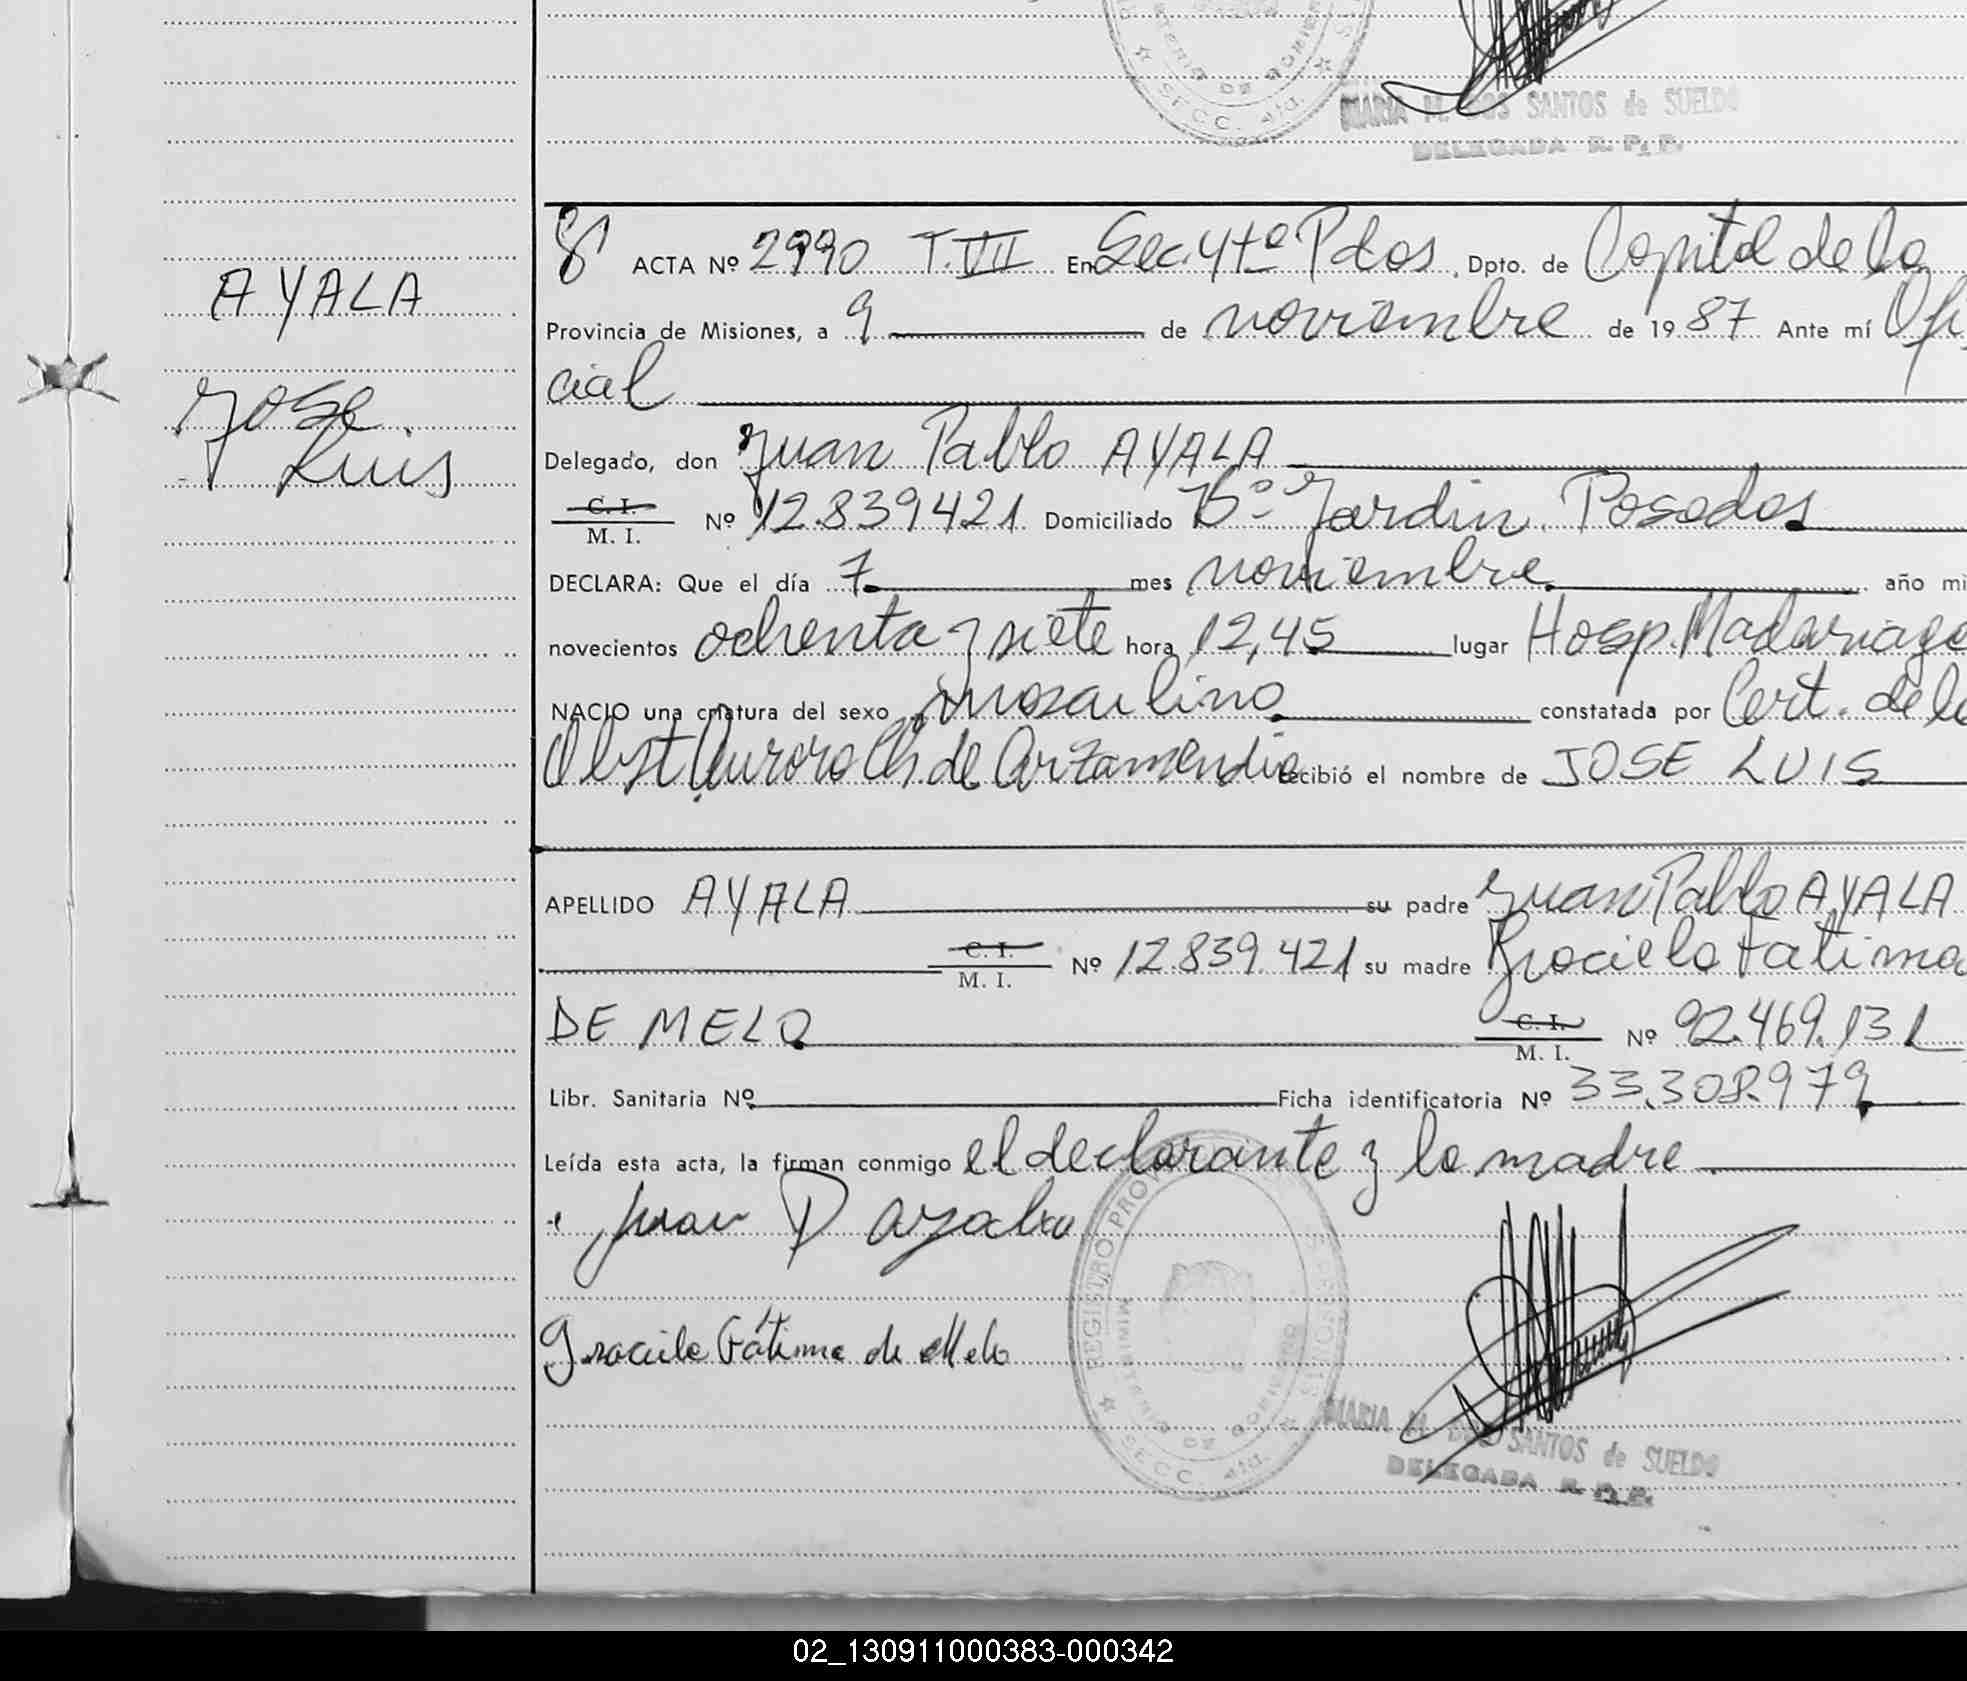 MARIA M. DOS SANTOS de SUELDO
DELEGADA R. P. P.
AYALA
Jose
Luis
8 ACTA Nº 2990 T. VII En Sec. 4ta Pdas , Dpto. de Capital de la
Provincia de Misiones, a 9 de noviembre de 19 87 Ante mí Ofi
cial
Delegado, don Juan Pablo AYALA
C. I.
M. I. Nº 12.839421 Domiciliado Bº Jardin. Posadas
DECLARA: Que el día 7 mes noviembre año mi
novecientos ochenta y siete hora 12,45 lugar Hosp. Madariaga
NACIO una criatura del sexo masculino constatada por Cert. de la
Obst Aurora Ch. de Arzamendia recibió el nombre de JOSE LUIS
APELLIDO AYALA su padre Juan Pablo AYALA
C. I.
M. I. Nº 12.839.421 su madre Graciela Fatima
DE MELO C. I.
M. I. Nº 92.469.131
Libr. Sanitaria Nº Ficha identificatoria Nº 33.308.979
Leída esta acta, la firman conmigo el declarante y la madre
Juan P Ayala
Graciela Fátima de Melo
REGISTRO PROV DE LAS PERSONAS
MINISTERIO DE GOBIERNO
SECC. 4ta.
MARIA M. DOS SANTOS de SUELDO
DELEGADA R. P. P.
02_130911000383-000342